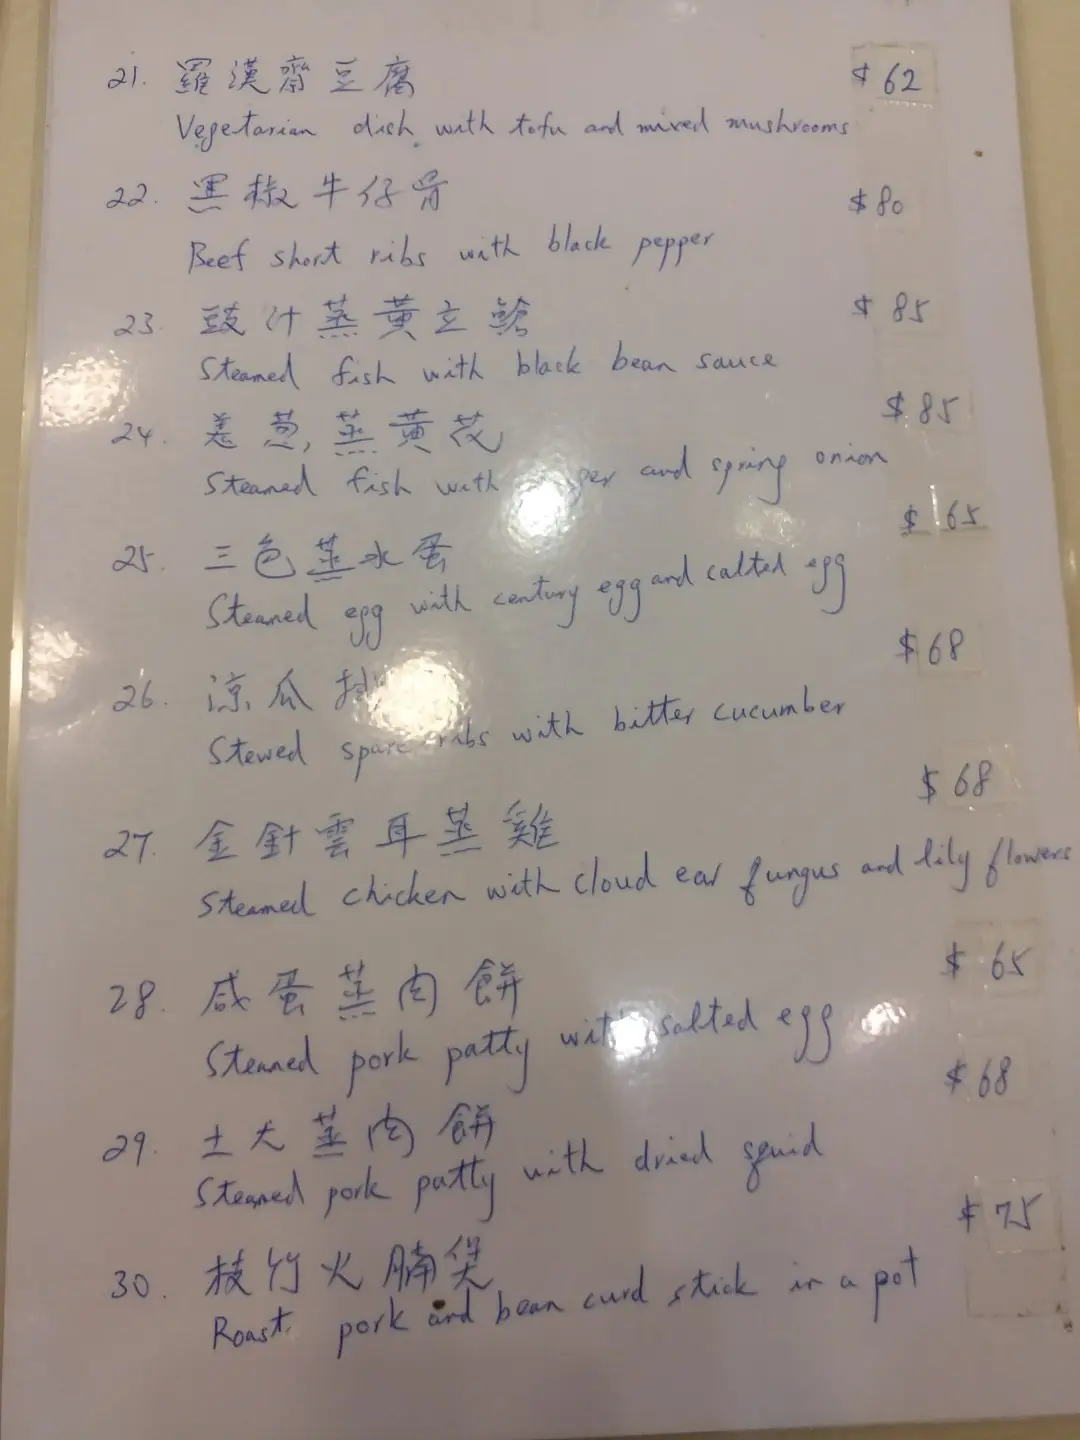 21. 羅漢齋豆腐 $62
Vegetarian dish with tofu and mixed mushrooms
22. 黑椒牛仔骨 $80
Beef short ribs with black pepper
23. 豉汁蒸黃立鯧 $85
Steamed fish with black bean sauce
24. 姜葱蒸黃花 $85
Steamed fish with and spring onion
25. 三色蒸水蛋 $65
Steamed egg with century egg and salted egg
26. 涼瓜 $68
Stewed spare ribs with bitter cucumber
27. 金針雲耳蒸雞 $68
Steamed chicken with cloud ear fungus and lily flowers
28. 咸蛋蒸肉餅 $65
Steamed pork patty with salted egg
29. 土尤蒸肉餅 $68
Steamed pork patty with dried squid
30. 枝竹火腩煲 $75
Roast pork and bean curd stick in a pot